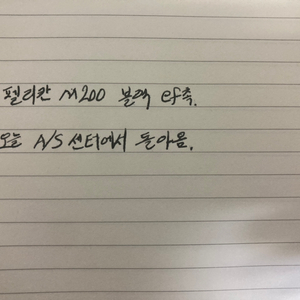 펠리칸 M200 블랙 ef촉.
오늘 A/S 센터에서 돌아옴.